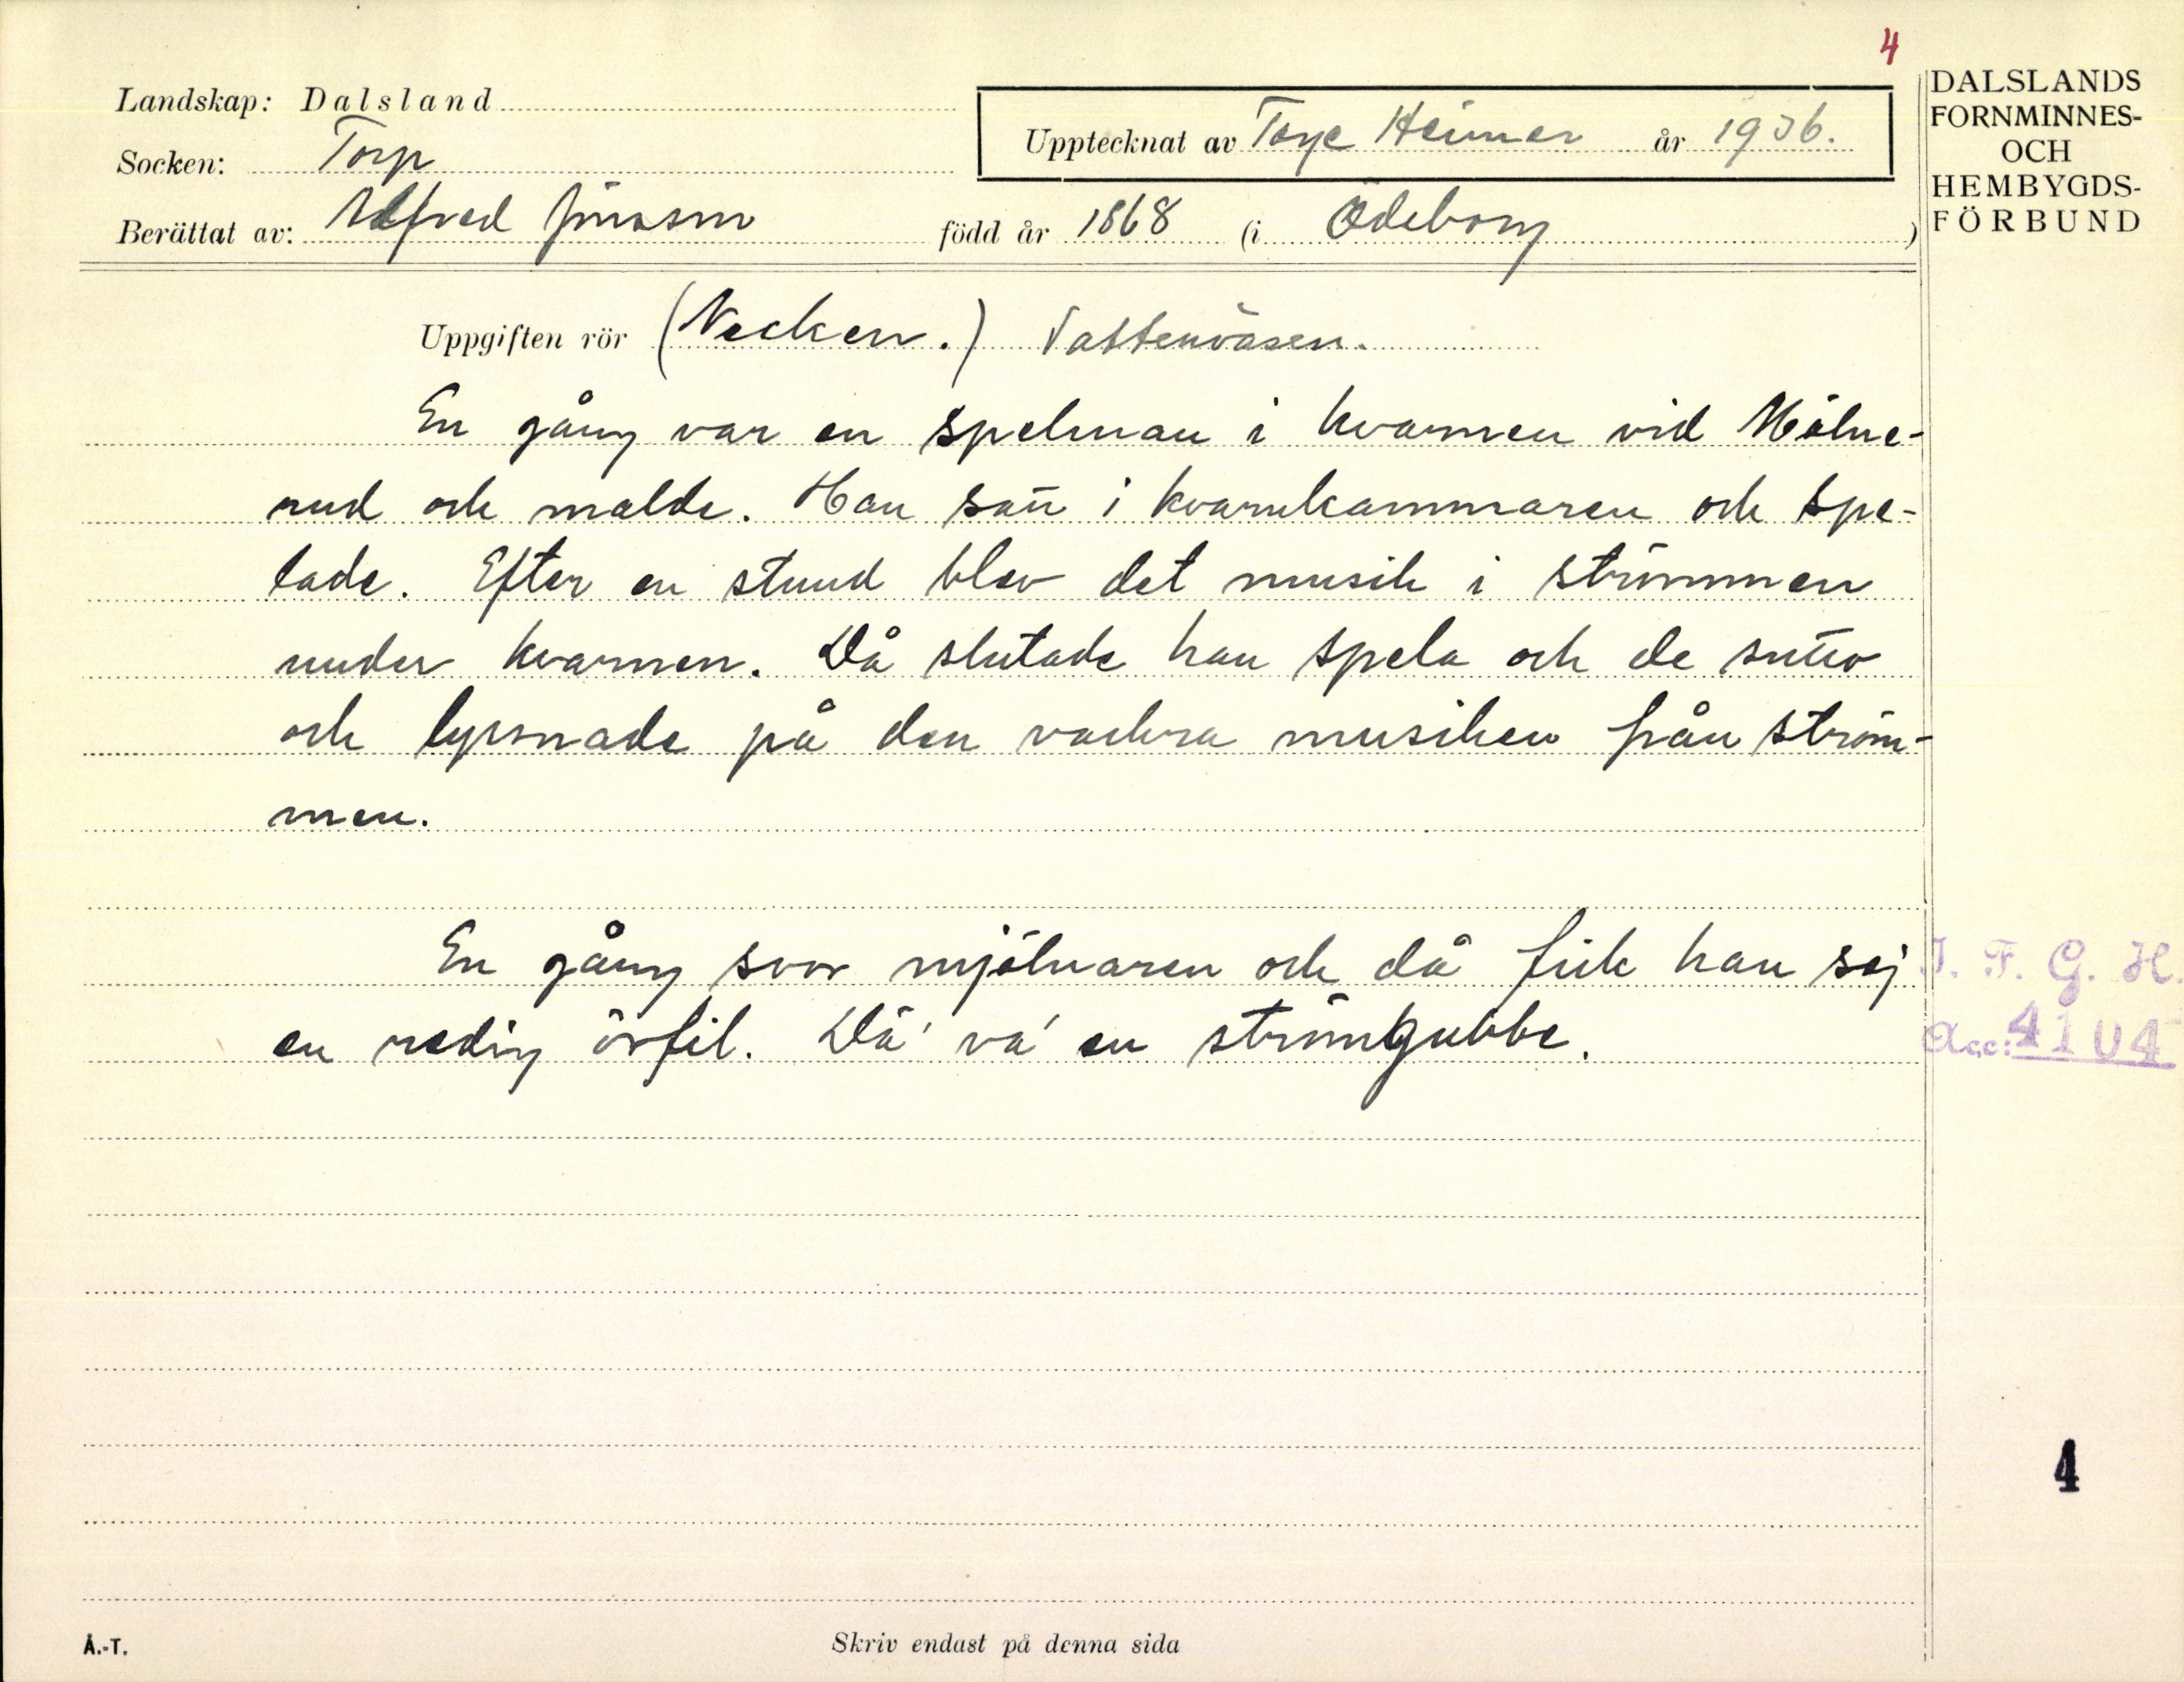 4
DALSLANDS
FORNMINNES-
OCH
HEMBYGDS-
FÖRBUND
Landskap: Dalsland
Socken: Torp
Upptecknat av Tage Heimer år 1936.
Berättat av: Alfred Jonsson född år 1868 (i Ödeborg)
Uppgiften rör (Necken.) Vattenväsen.
En gång var en spelman i kvarnen vid Mölne-
rud och malde. Han satt i kvarnkammaren och spe-
lade. Efter en stund blev det musik i strömmen
under kvarnen. Då slutade han spela och de sutto
och lyssnade på den vackra musiken från ström-
men.
En gång svor mjölnaren och då fick han sej
en redig örfil. Dä' va' en strömgubbe.
I. F. G. H.
Acc: 4104
4
Å.-T.
Skriv endast på denna sida